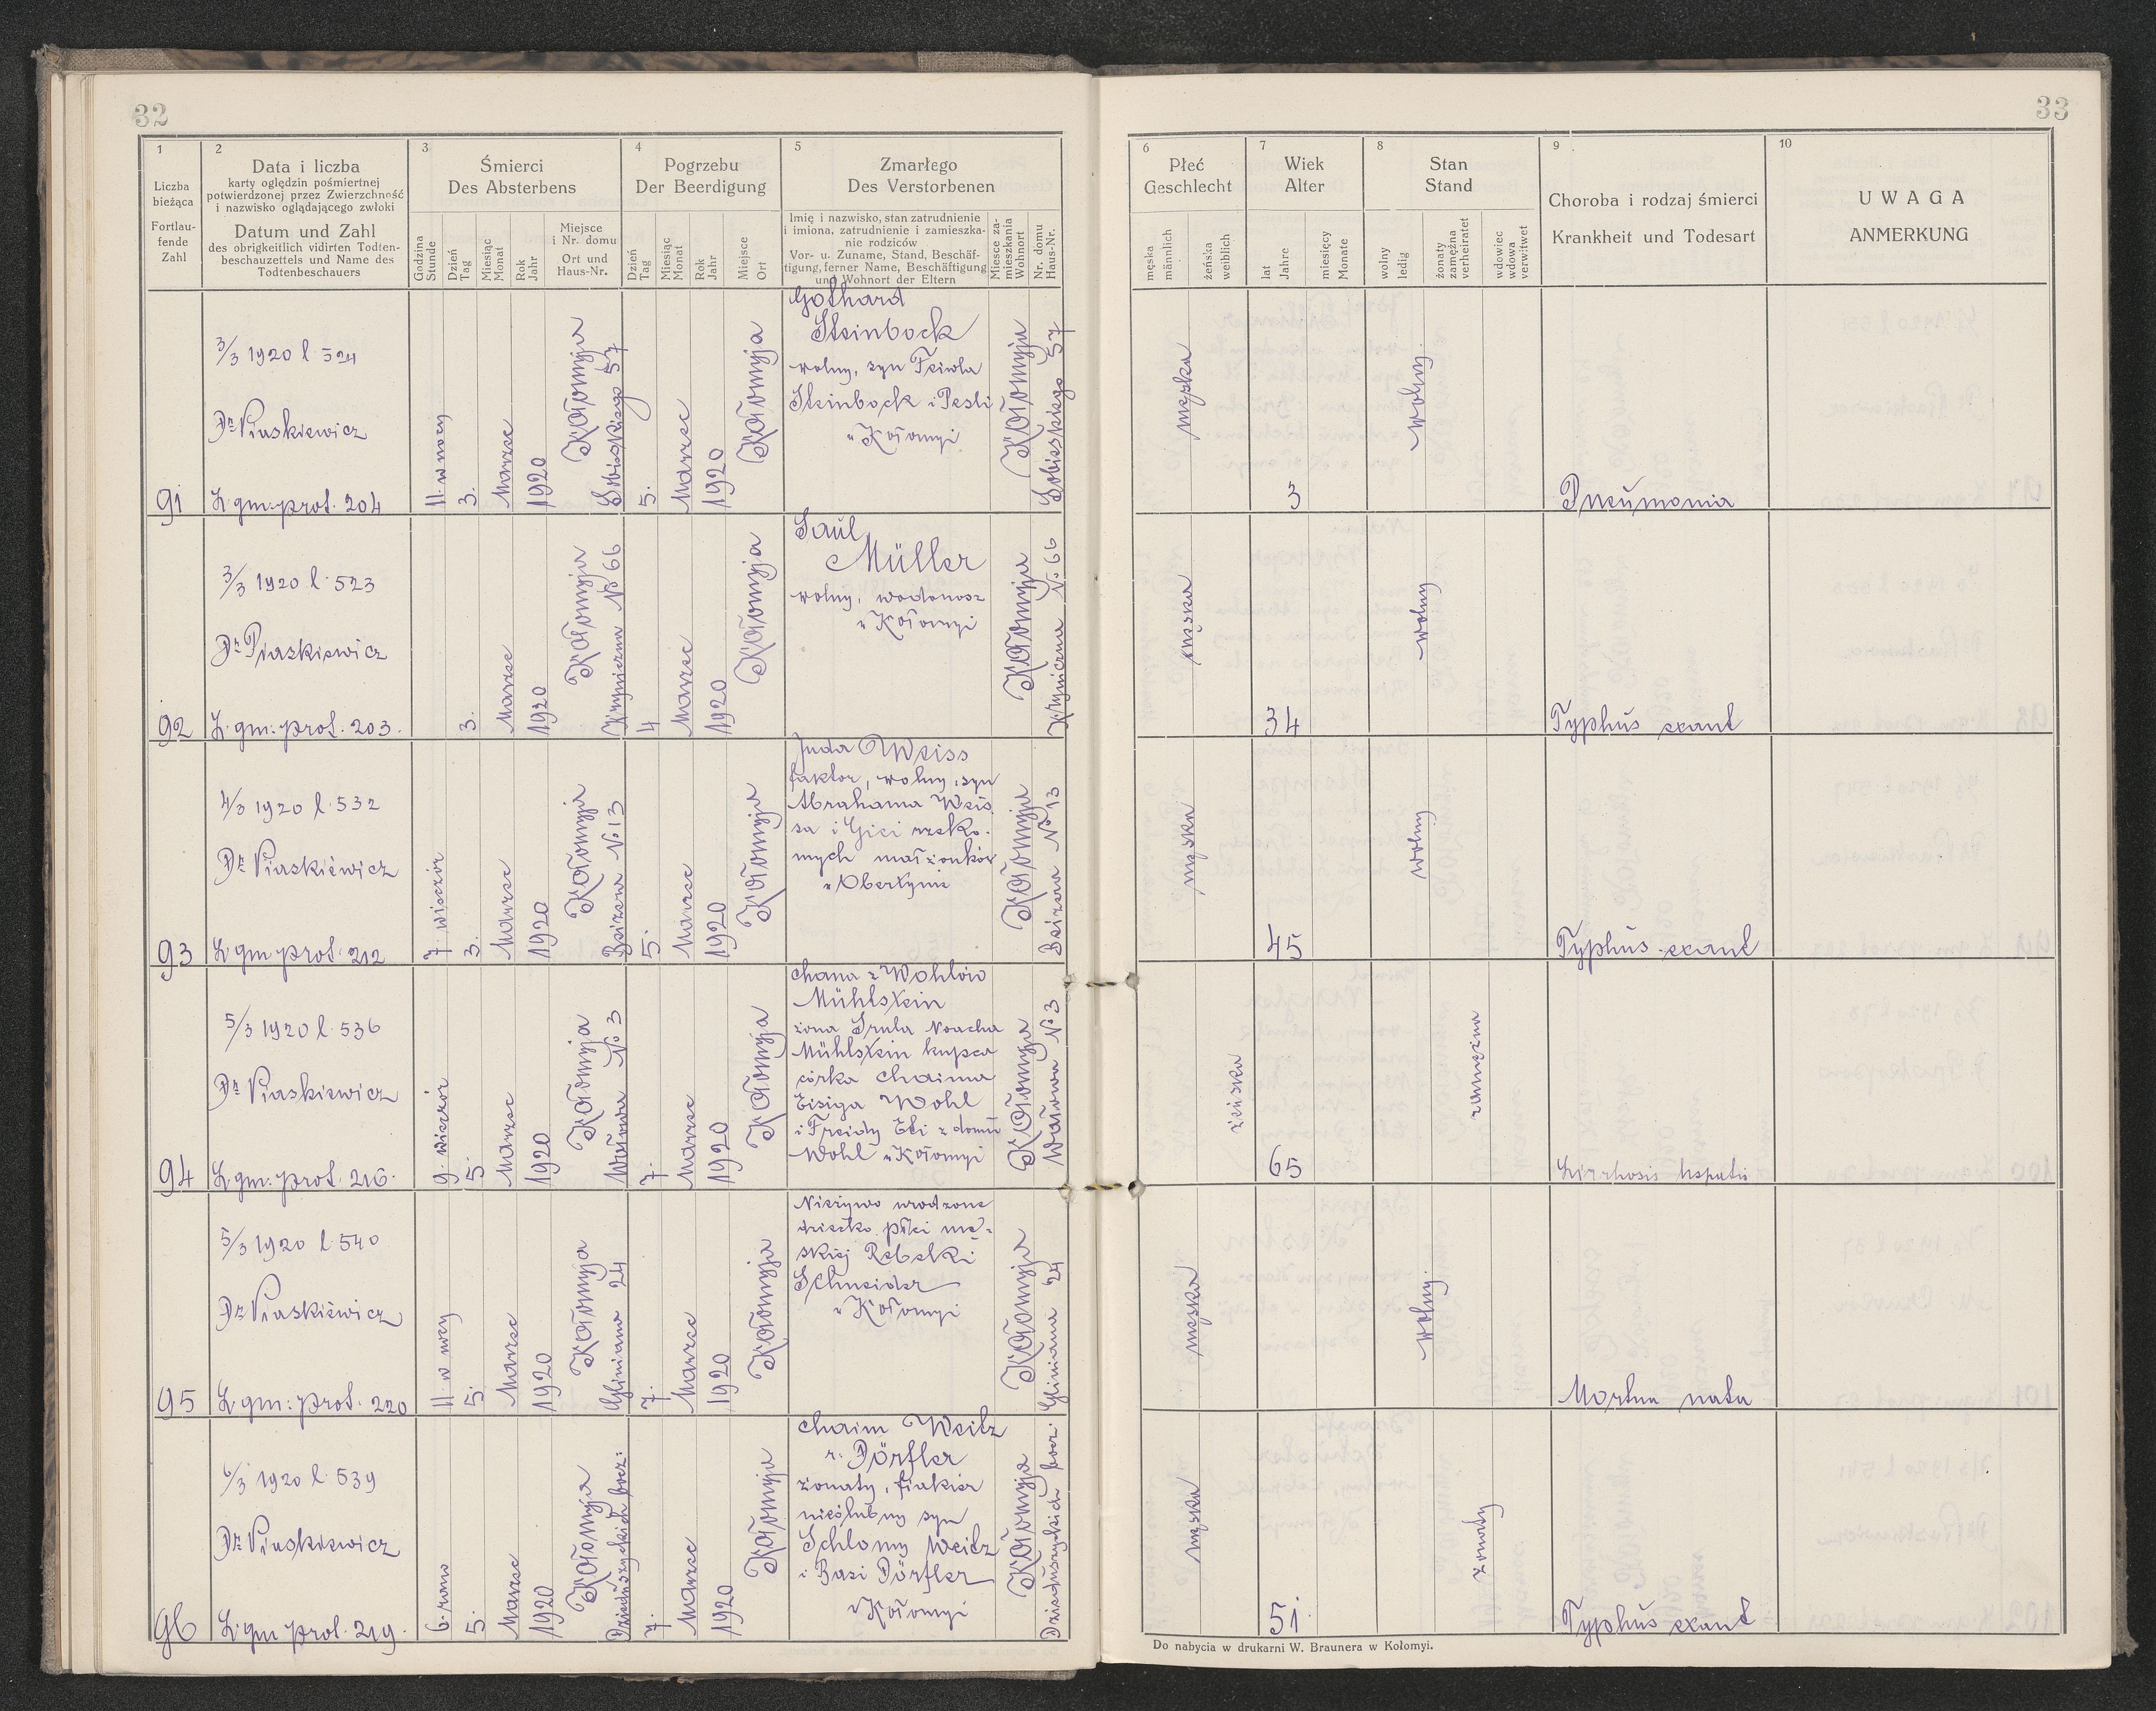 32
1
Liczba
bieżąca
Fortlau-
fende
Zahl
2
Data i liczba
karty oględzin pośmiertnej
potwierdzonej przez Zwierzchność
i nazwisko oglądającego zwłoki
Datum und Zahl
des obrigkeitlich vidirten Todten-
beschauzettels und Name des
Todtenbeschauers
3
Śmierci
Des Absterbens
Godzina
Stunde
Dzień
Tag
Miesiąc
Monat
Rok
Jahr
Miejsce
i Nr. domu
Ort und
Haus-Nr.
4
Pogrzebu
Der Beerdigung
Dzień
Tag
Miesiąc
Monat
Rok
Jahr
Miejsce
Ort
5
Zmarłego
Des Verstorbenen
Imię i nazwisko, stan zatrudnienie
i imiona, zatrudnienie i zamieszka-
nie rodziców
Vor- u. Zuname, Stand, Beschäf-
tigung, ferner Name, Beschäftigung
und Wohnort der Eltern
Miesce za-
mieszkania
Wohnort
Nr. domu
Haus-Nr.
91
3/3 1920 l. 524
Dr Piaskiewicz
L. gm: prot. 204
11 w nocy
3.
Marzec
1920
Kołomyja
Sobieskiego 57
5.
Marzec
1920
Kołomyja
Gothard
Steinbock
wolny, syn Feiwla
Steinbock i Pesli
z Kołomyi
Kołomyja
Sobieskiego 57
92
3/3 1920 l. 523
Dr Piaskiewicz
L. gm: prot. 203.
3.
Marzec
1920
Kołomyja
Krynicza No 66
4
Marzec
1920
Kołomyja
Saul
Müller
wolny, wodonosz
z Kołomyi
Kołomyja
No 66
93
4/3 1920 l. 532
Dr Piaskiewicz
L. gm prot. 212
7. wieczór
3.
Marzec
1920
Kołomyja
Beizera No 13
5.
Marzec
1920
Kołomyja
Juda Weiss
faktor, wolny, syn
Abrahama Weis
sa i Gici rzeko.
mych małżonków
z Obertyna
Kołomyja
Beizera No 13
94
5/3 1920 l. 536
Dr Piaskiewicz
L. gm: prot. 216.
9. wieczór
5.
Marzec
1920
Kołomyja
Wałowa No 3
7.
Marzec
1920
Kołomyja
Chana z Wohlów
Mühlstein
żona Srula Noacha
Mühlstein kupca
córka Chaima
Eisiga Wohl
i Freidy Eli z domu
Wohl z Kołomyi
Kołomyja
Wałowa No 3
95
5/3 1920 l 540
Dr Piaskiewicz
L. gm: prot. 220
11 w nocy
5.
Marzec
1920
Kołomyja
Gliniana 24
7.
Marzec
1920
Kołomyja
Nieżywo urodzone
dziecko płci mę-
skiej Rebeki
Schneider
z Kołomyi
Kołomyja
Gliniana 24
96
6/3 1920 l. 539
Dr Piaskiewicz
L. gm prot. 219.
6. rano
5.
Marzec
1920
Kołomyja
Dzieduszyckich bocz:
7.
Marzec
1920
Kołomyja
Chaim Weitz
r. Dörfler
żonaty, fiakier
nieślubny syn
Schlomy Weitz
i Basi Dörfler
z Kołomyi
Kołomyja
Dzieduszyckich bocz.
33
6
Płeć
Geschlecht
męska
männlich
żeńska
weiblich
7
Wiek
Alter
lat
Jahre
miesięcy
Monate
8
Stan
Stand
wolny
ledig
żonaty
zamężna
verheiratet
wdowiec
wdowa
verwitwet
9
Choroba i rodzaj śmierci
Krankheit und Todesart
10
UWAGA
ANMERKUNG
męska
3
wolny.
Pneumonia
męska
34
wolny
Typhus exant
męska
45
wolny
Typhus exant
żeńska
65
zamężna
Cirrhosis hepatis
męska
wolny.
Mortua nata
męska
51
żonaty
Typhus exant
Do nabycia w drukarni W. Braunera w Kołomyi.